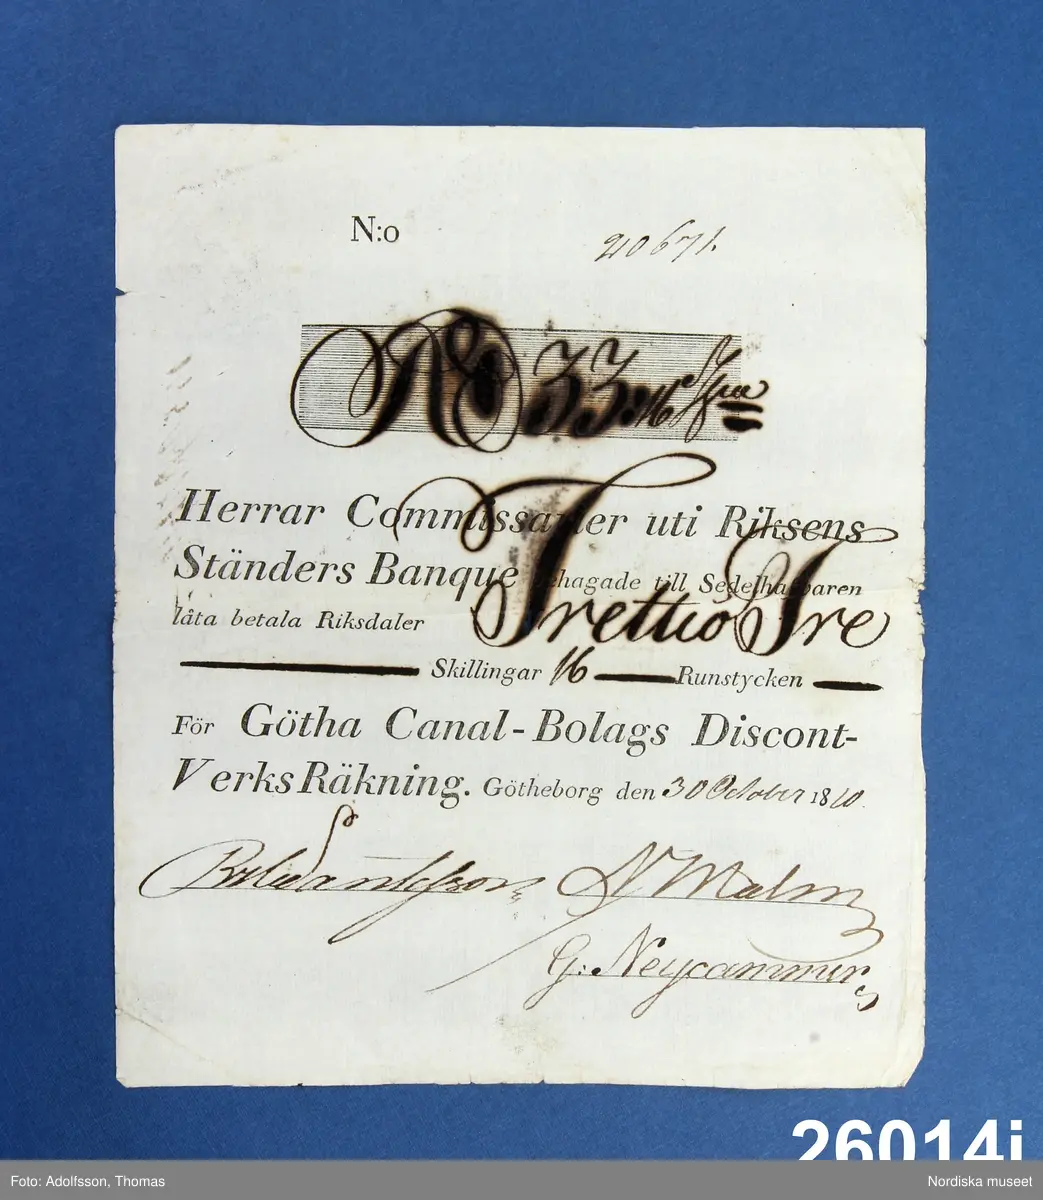 N:o 20671.
Rd 33:16 s
Herrar Commissarier uti Riksens
Ständers Banque behagade till Sedelhafvaren
låta betala Riksdaler Trettio Tre
Skillingar 16 Runstycken
För Götha Canal-Bolags Discont-
Verks Räkning. Götheborg den 30 October 1810.
N Malm
G: Neycammer
26014i
Foto: Adolfsson, Thomas Nordiska museet